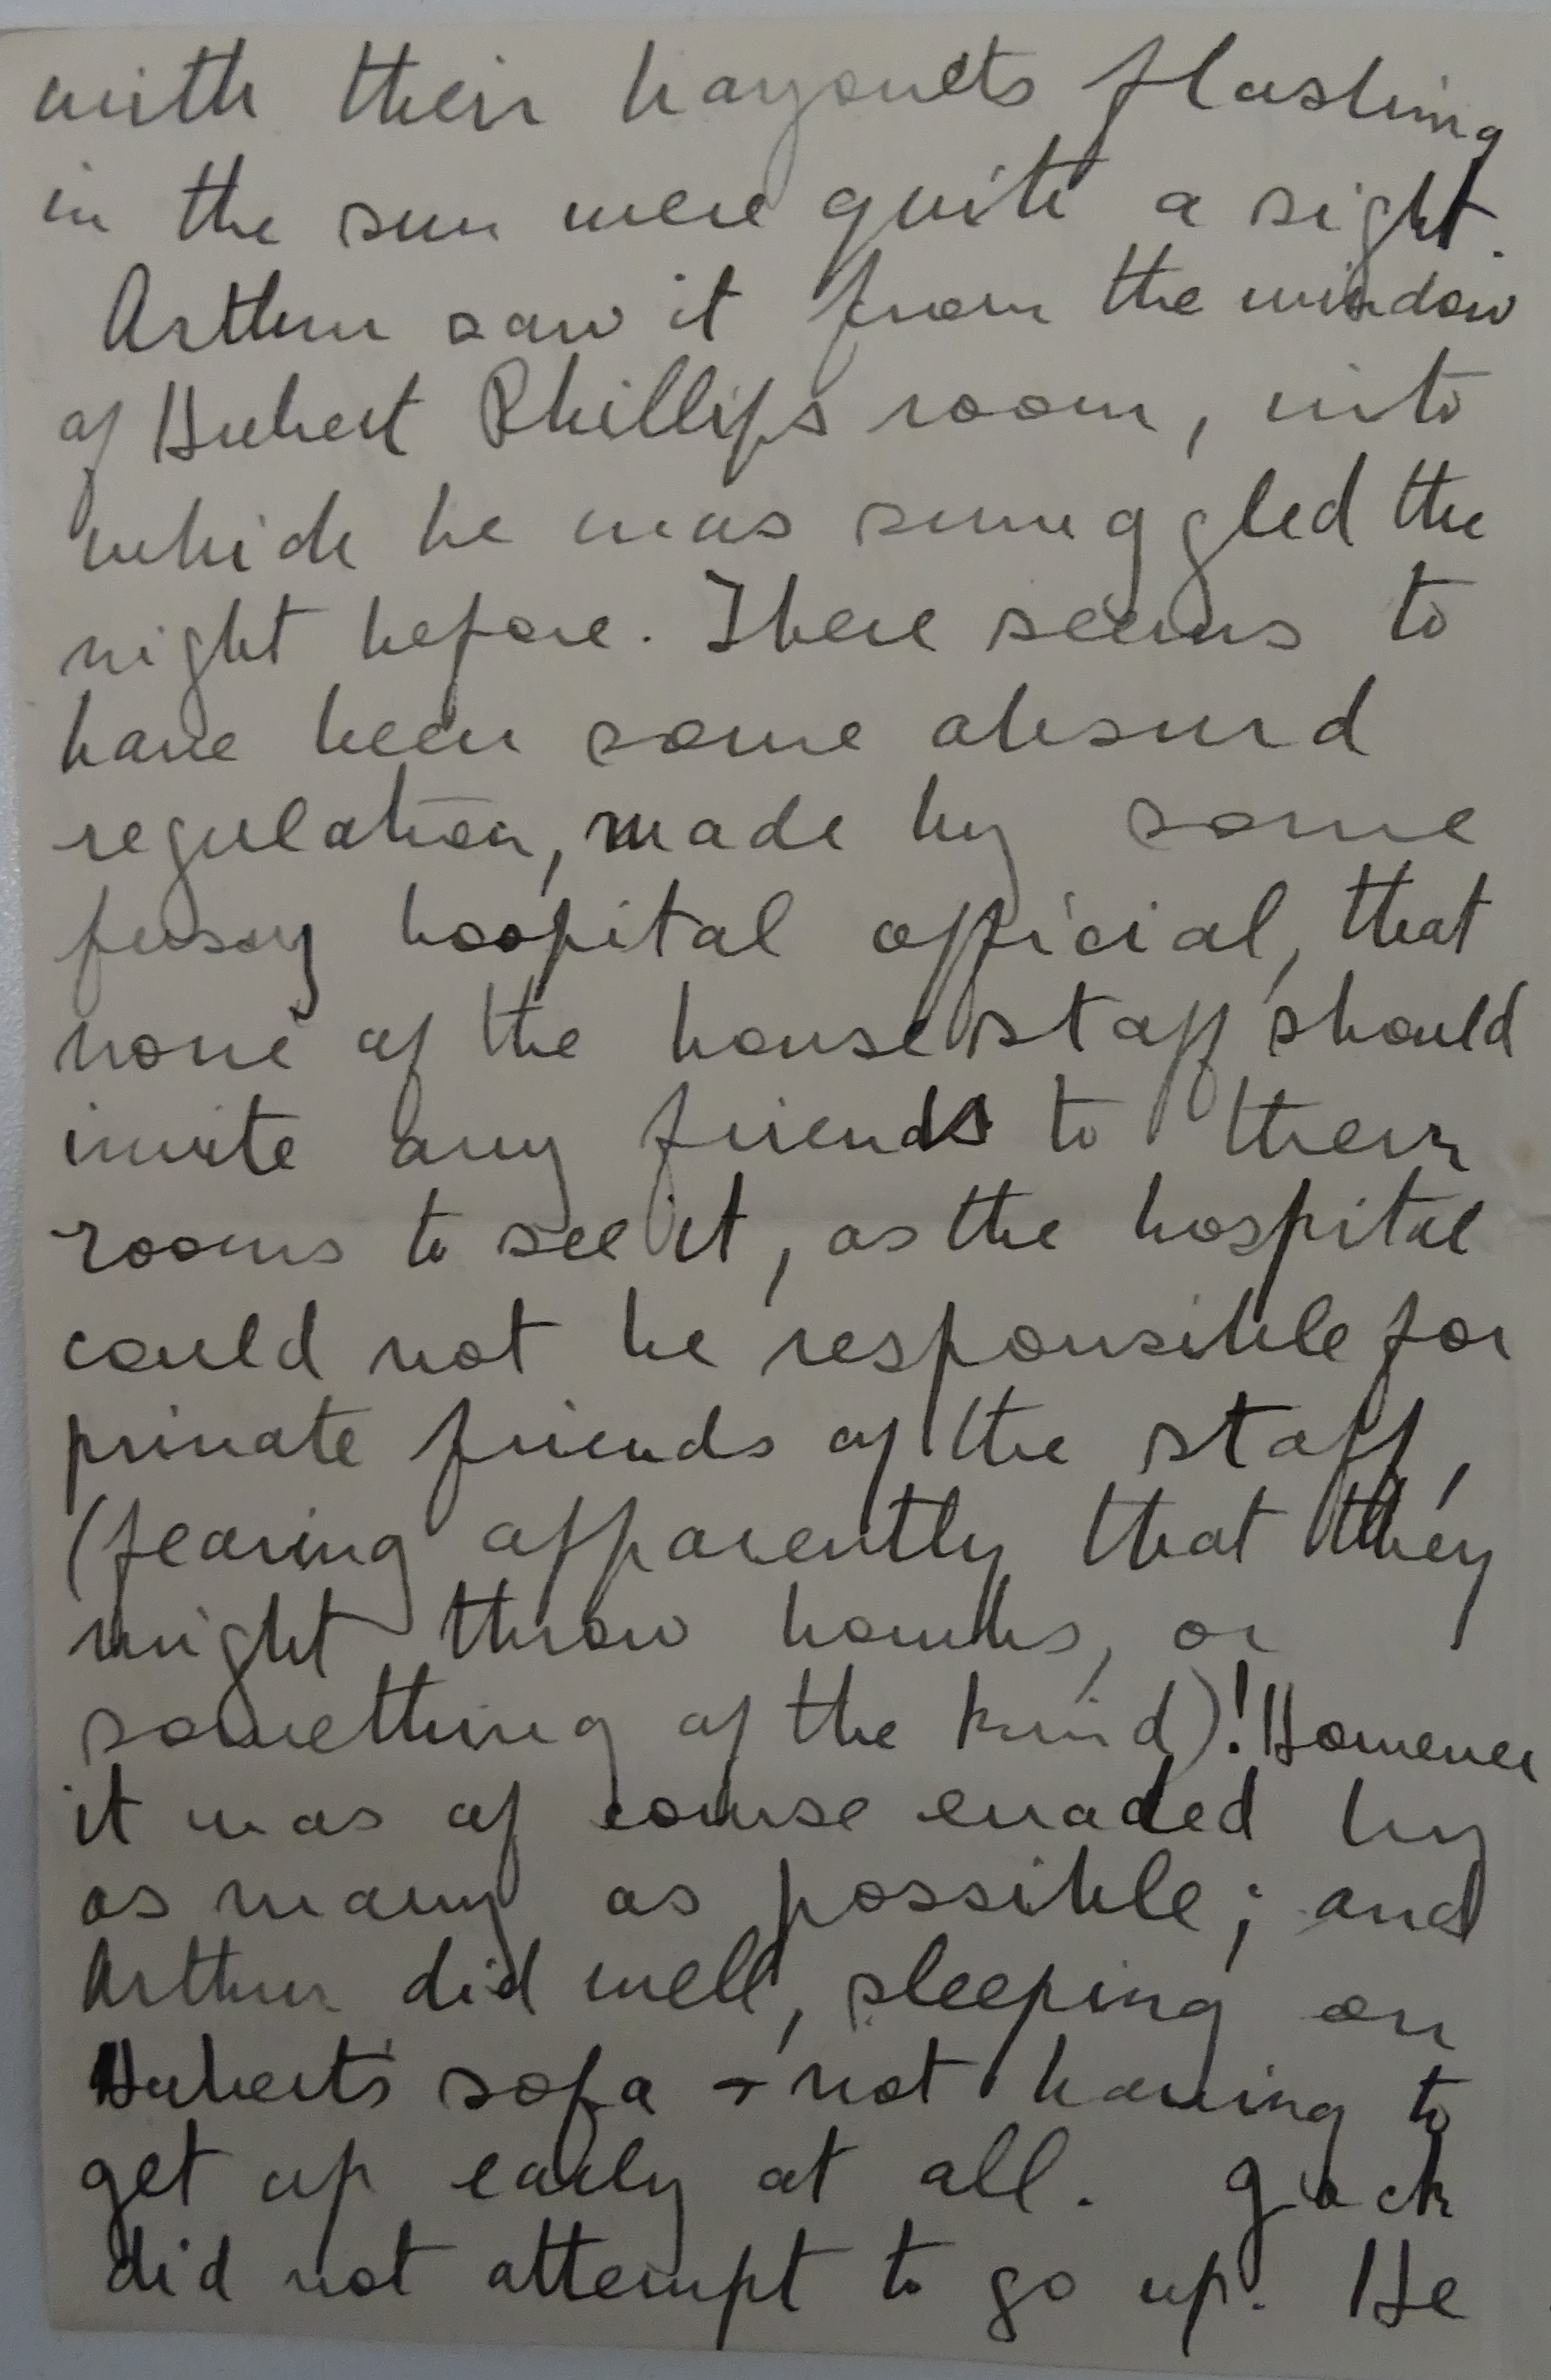 with their bayonets flashing
in the sun were quite a sight.
Arthur saw it from the window
of Hubert Phillips room, into
which he was smuggled the
night before. There seems to
have been some absurd
regulation, made by some
fussy hospital official, that
none of the house staff should
invite any friends to their
rooms to see it, as the hospital
could not be responsible for
private friends of the staff,
(fearing apparently that they
might throw bombs, or
something of the kind)! However
it was of course evaded by
as many as possible; and
Arthur did well, sleeping on
Hubert's sofa + not having to
get up early at all. Jack
did not attempt to go up. He